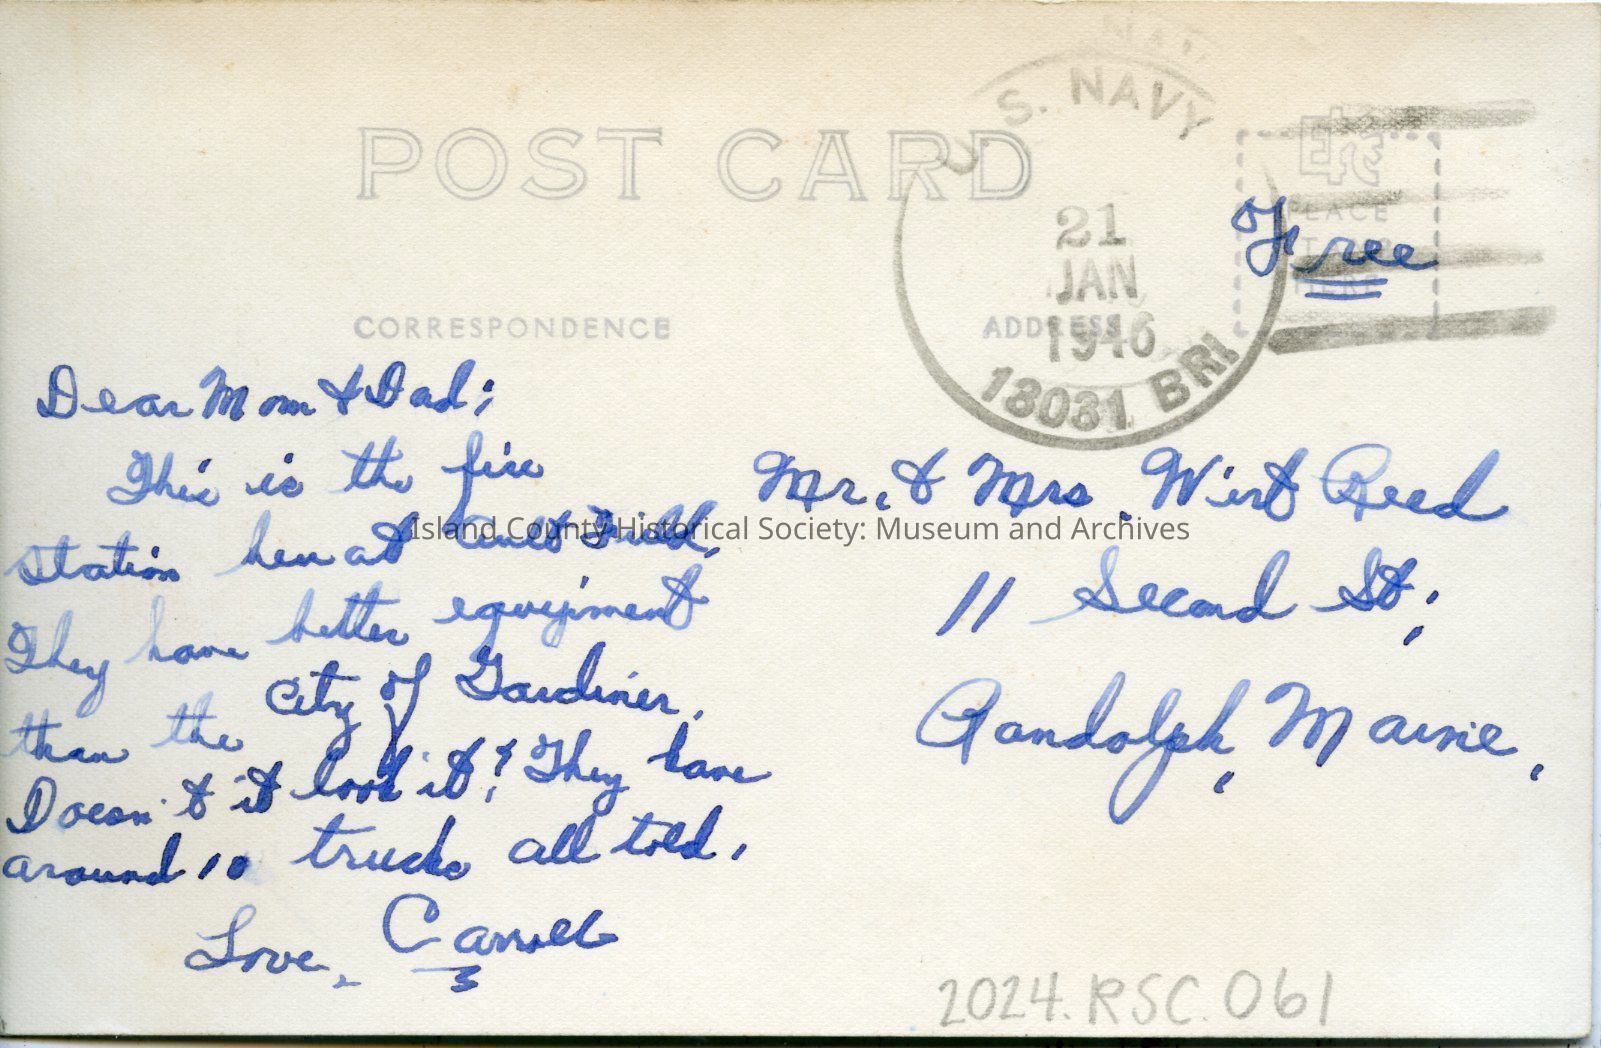 U.S. NAVY
21
JAN
1946
13031 BRI
POST CARD
EKC
PLACE
STAMP
HERE
Free
CORRESPONDENCE
ADDRESS
Dear Mom & Dad;
This is the fire
station here at Ault Field.
They have better equipment
than the City of Gardiner.
Doesn't it look it? They have
around 10 trucks all told.
Love,
Carroll
Mr. & Mrs. Wirt Reed
11 Second St.,
Randolph, Maine.
Island County Historical Society: Museum and Archives
2024.RSC.061